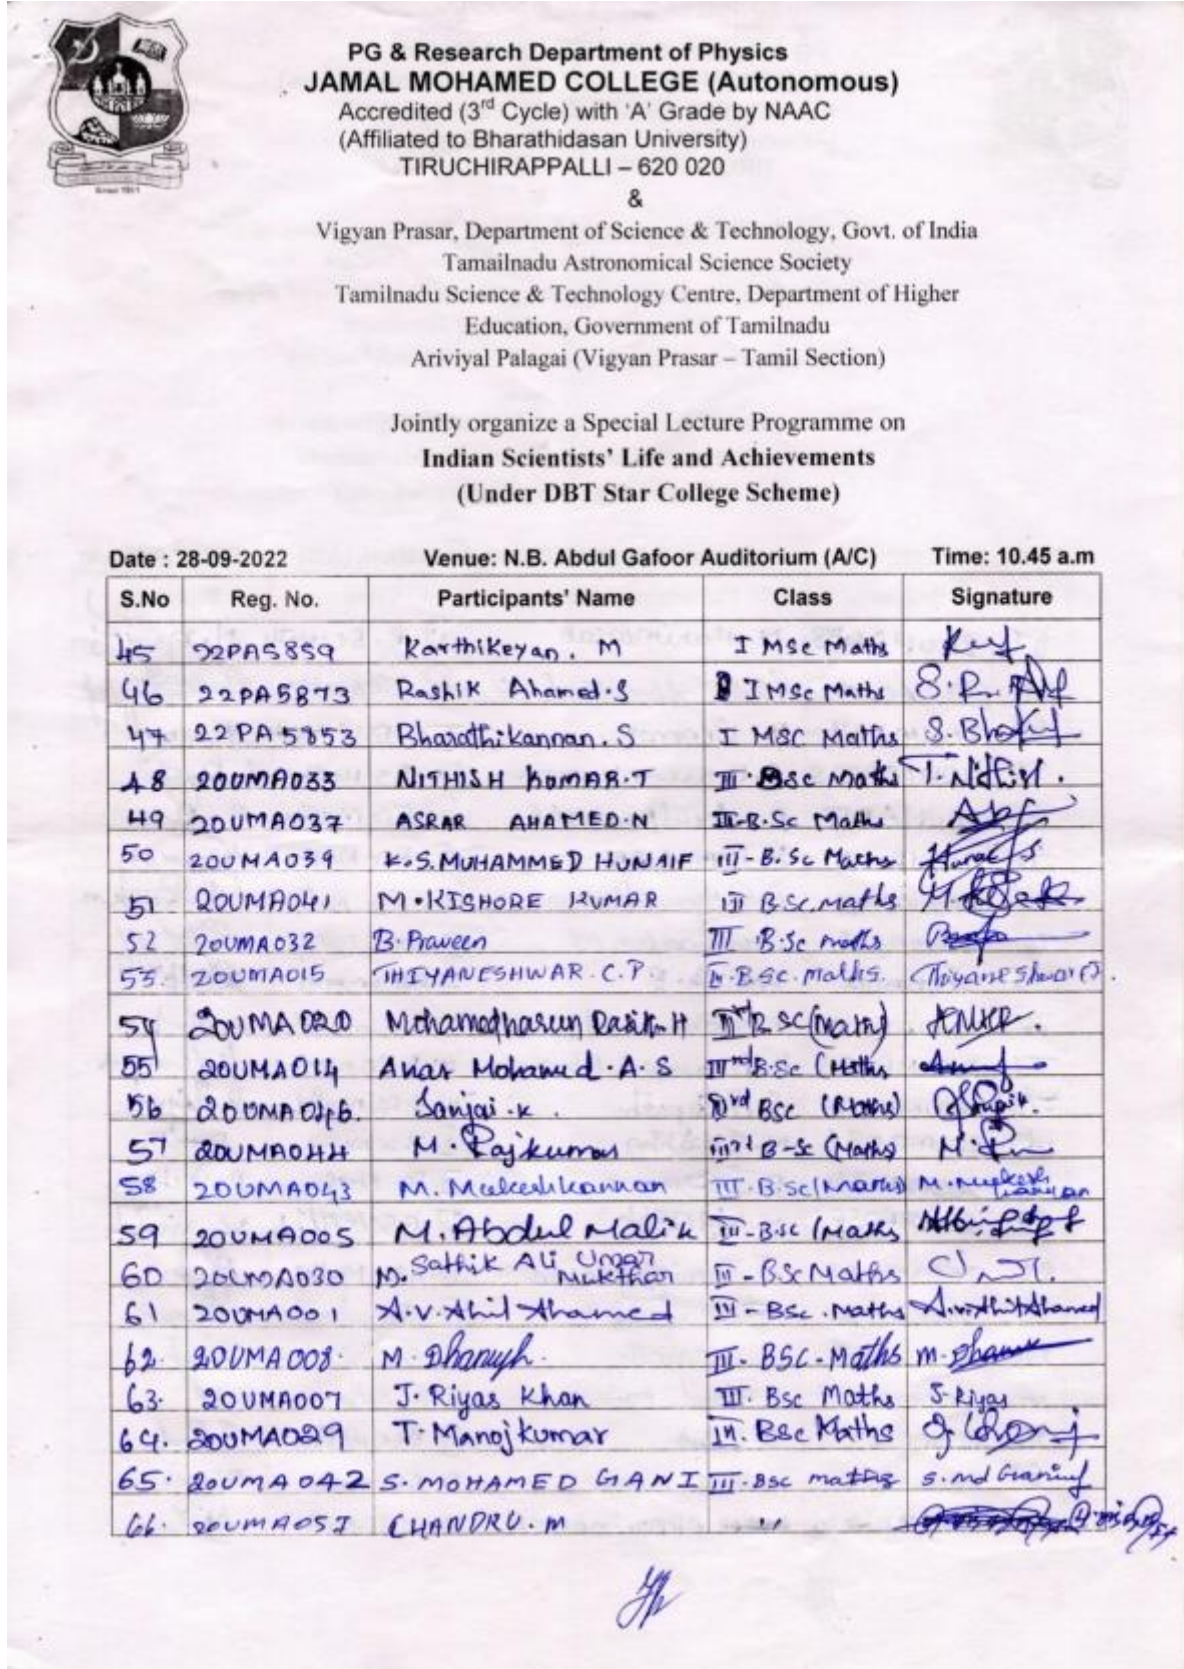 PG & Research Department of Physics
JAMAL MOHAMED COLLEGE (Autonomous)
Accredited (3rd Cycle) with 'A' Grade by NAAC
(Affiliated to Bharathidasan University)
TIRUCHIRAPPALLI – 620 020
&
Vigyan Prasar, Department of Science & Technology, Govt. of India
Tamailnadu Astronomical Science Society
Tamilnadu Science & Technology Centre, Department of Higher
Education, Government of Tamilnadu
Ariviyal Palagai (Vigyan Prasar – Tamil Section)
Jointly organize a Special Lecture Programme on
Indian Scientists' Life and Achievements
(Under DBT Star College Scheme)
Date : 28-09-2022 Venue: N.B. Abdul Gafoor Auditorium (A/C) Time: 10.45 a.m
S.No Reg. No. Participants' Name Class Signature
45 22PA5859 Karthikeyan. M I MSc Maths
46 22PA5873 Rashik Ahamed.S I MSc Maths
47 22PA5853 Bharathikannan. S I MSC Maths
48 20UMA033 NITHISH KUMAR.T III. BSc Maths
49 20UMA037 ASRAR AHAMED.N III-B.Sc Maths
50 20UMA039 K.S.MUHAMMED HUNAIF III-B.Sc Maths
51 20UMA041 M.KISHORE KUMAR III B.Sc.maths
52 20UMA032 B.Praveen III B.Sc maths
53. 20UMA015 THIYANESHWAR.C.P III.B.SC.maths. Thiyaneshwar
54 20UMA020 III B SC(math)
55 20UMA014 Mohamed.A.S III B.Sc (Maths
56 20UMA046. Sanjai.K. Bsc (Maths)
57 20UMA044 M.Rajkumar B-Sc (Maths)
58 20UMA043 M. Mukeshkannan III.B.Sc(Maths) M.Mukesh kannan
59 20UMA005 M.Abdul Malik III-B.sc (Maths
60 20UMA030 M. Sathik Ali Umar Mukthar III-BSc Maths
61 20UMA001 A.V.Ahil Ahamed III-BSc.Maths A.V.Ahil Ahamed
62. 20UMA008. M.Dhanush. III-BSC-Maths
63. 20UMA007 J.Riyas Khan III. Bsc Maths J.Riyas
64. 20UMA029 T.Manojkumar III. BSc Maths
65. 20UMA042 S.MOHAMED GANI III.BSc maths S.md Gani
66. 20UMA051 CHANDRU.M "